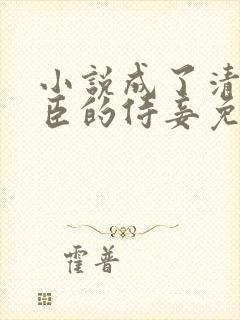 小说成了清
臣的侍妾免
霍普